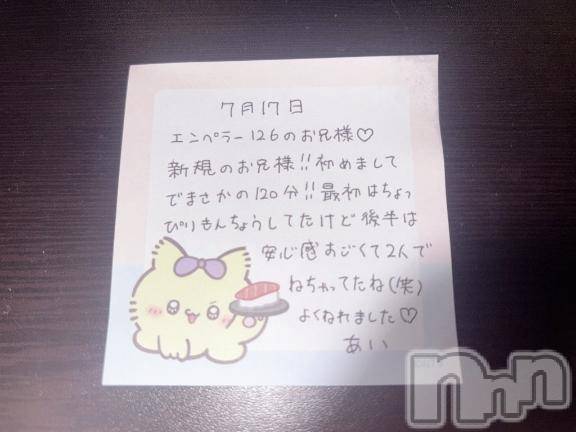 7月17日
エンペラー126のお兄様♡
新規のお兄様!!初めまして
でまさかの120分!!最初はちょっ
ぴりもんちょうしてたけど後半は
安心感すごくて2人で
ねちゃってたね(笑)
よくねれました♡
あい
nnn